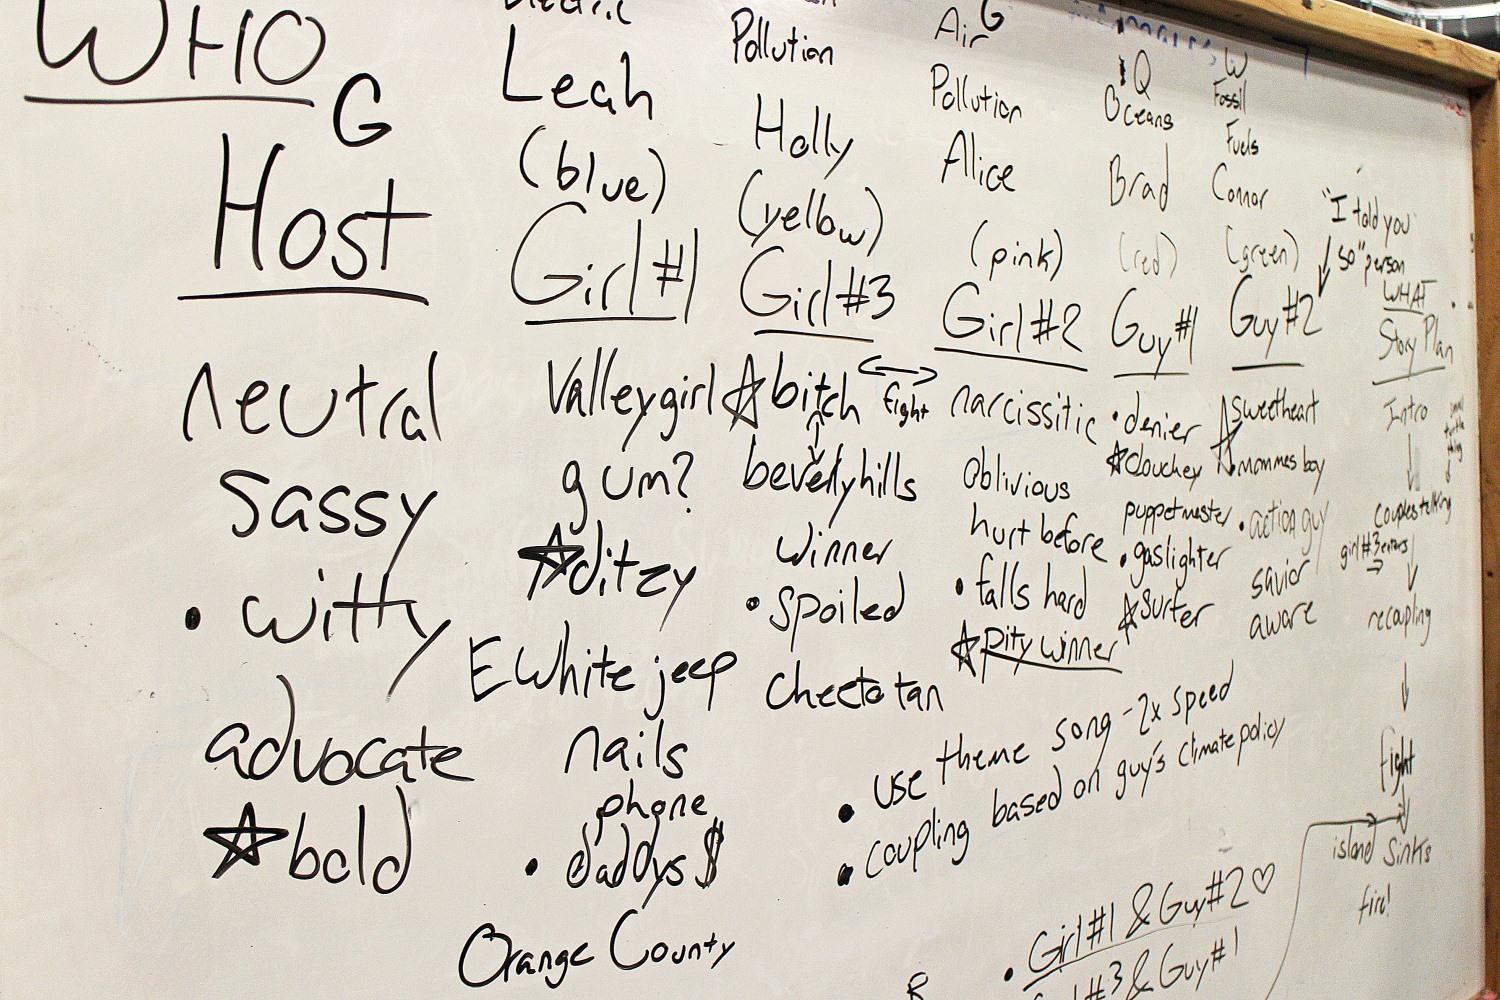 WHO
G
Host
neutral
sassy
• witty
advocate
☆ bold
Electric
Leah
(blue)
Girl #1
Valleygirl
gum?
☆ ditzy
E White jeep
nails
phone
• daddys $
Orange County
Pollution
Holly
(yellow)
Girl #3
☆ bitch
beverlyhills
winner
• spoiled
cheeto tan
fight
G
Air
Pollution
Alice
(pink)
Girl #2
narcissitic
oblivious
hurt before
• falls hard
☆ pity winner
Q
Oceans
Brad
(red)
Guy #1
• denier
☆ douchey
puppetmaster
• gaslighter
☆ surfer
W
Fossil
Fuels
Connor
(green)
Guy #2
☆ sweetheart
mommes boy
• action guy
savior
aware
"I told you
so" person
WHAT
Story Plan
Intro
couples talking
girl #3 enters
recoupling
fight
island sinks
fire!
• use theme song - 2x speed
• coupling based on guy's climate policy
• Girl #1 & Guy #2 ♡
#3 & Guy #1